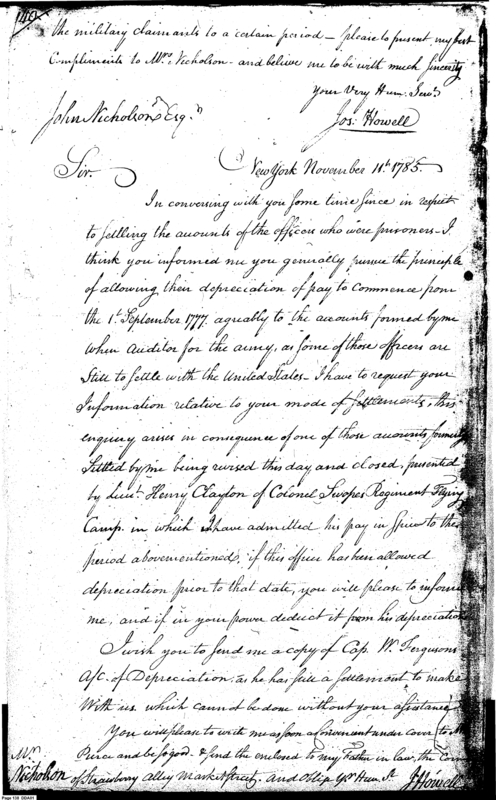 140
the military claimants to a certain period – please to present my best
Compliments to Mrs. Nicholson – and believe me to be with much Sincerity
your Very Hum. Servt.
John Nicholson Esqr.
Jos: Howell
New York November 11th. 1785.
Sir.
In conversing with you some time since in respect
to settling the accounts of the officers who were prisoners – I
think you informed me you generally pursue the principle
of allowing their depreciation of pay to commence from
the 1st. September 1777. agreeably to the accounts formed by me
when Auditor for the army, as some of those officers are
Still to settle with the United States – I have to request your
Information relative to your mode of settlements, this
enquiry arises in consequence of one of those accounts formerly
Settled by me being revised this day and closed, presented
by Lieut. Henry Clayton of Colonel Swopes Regiment Flying
Camp. in which I have admitted his pay in specie to the
period abovementioned, if this officer has been allowed
depreciation prior to that date, you will please to inform
me, and if in your power deduct it from his depreciation
I wish you to send me a copy of Cap. Wm. Fergusons
A/c. of Depreciation. as he has still a settlement to make
With us. which cannot be done without your assistance
You will please to write me as soon as convenient under cover to Mr
Pierce and be so good. & send the enclosed to my Father in law, the Corner
of Strawberry alley Market Street, and oblige yr. Hum. St.
Mr.
Nicholson
J Howell
Page 139